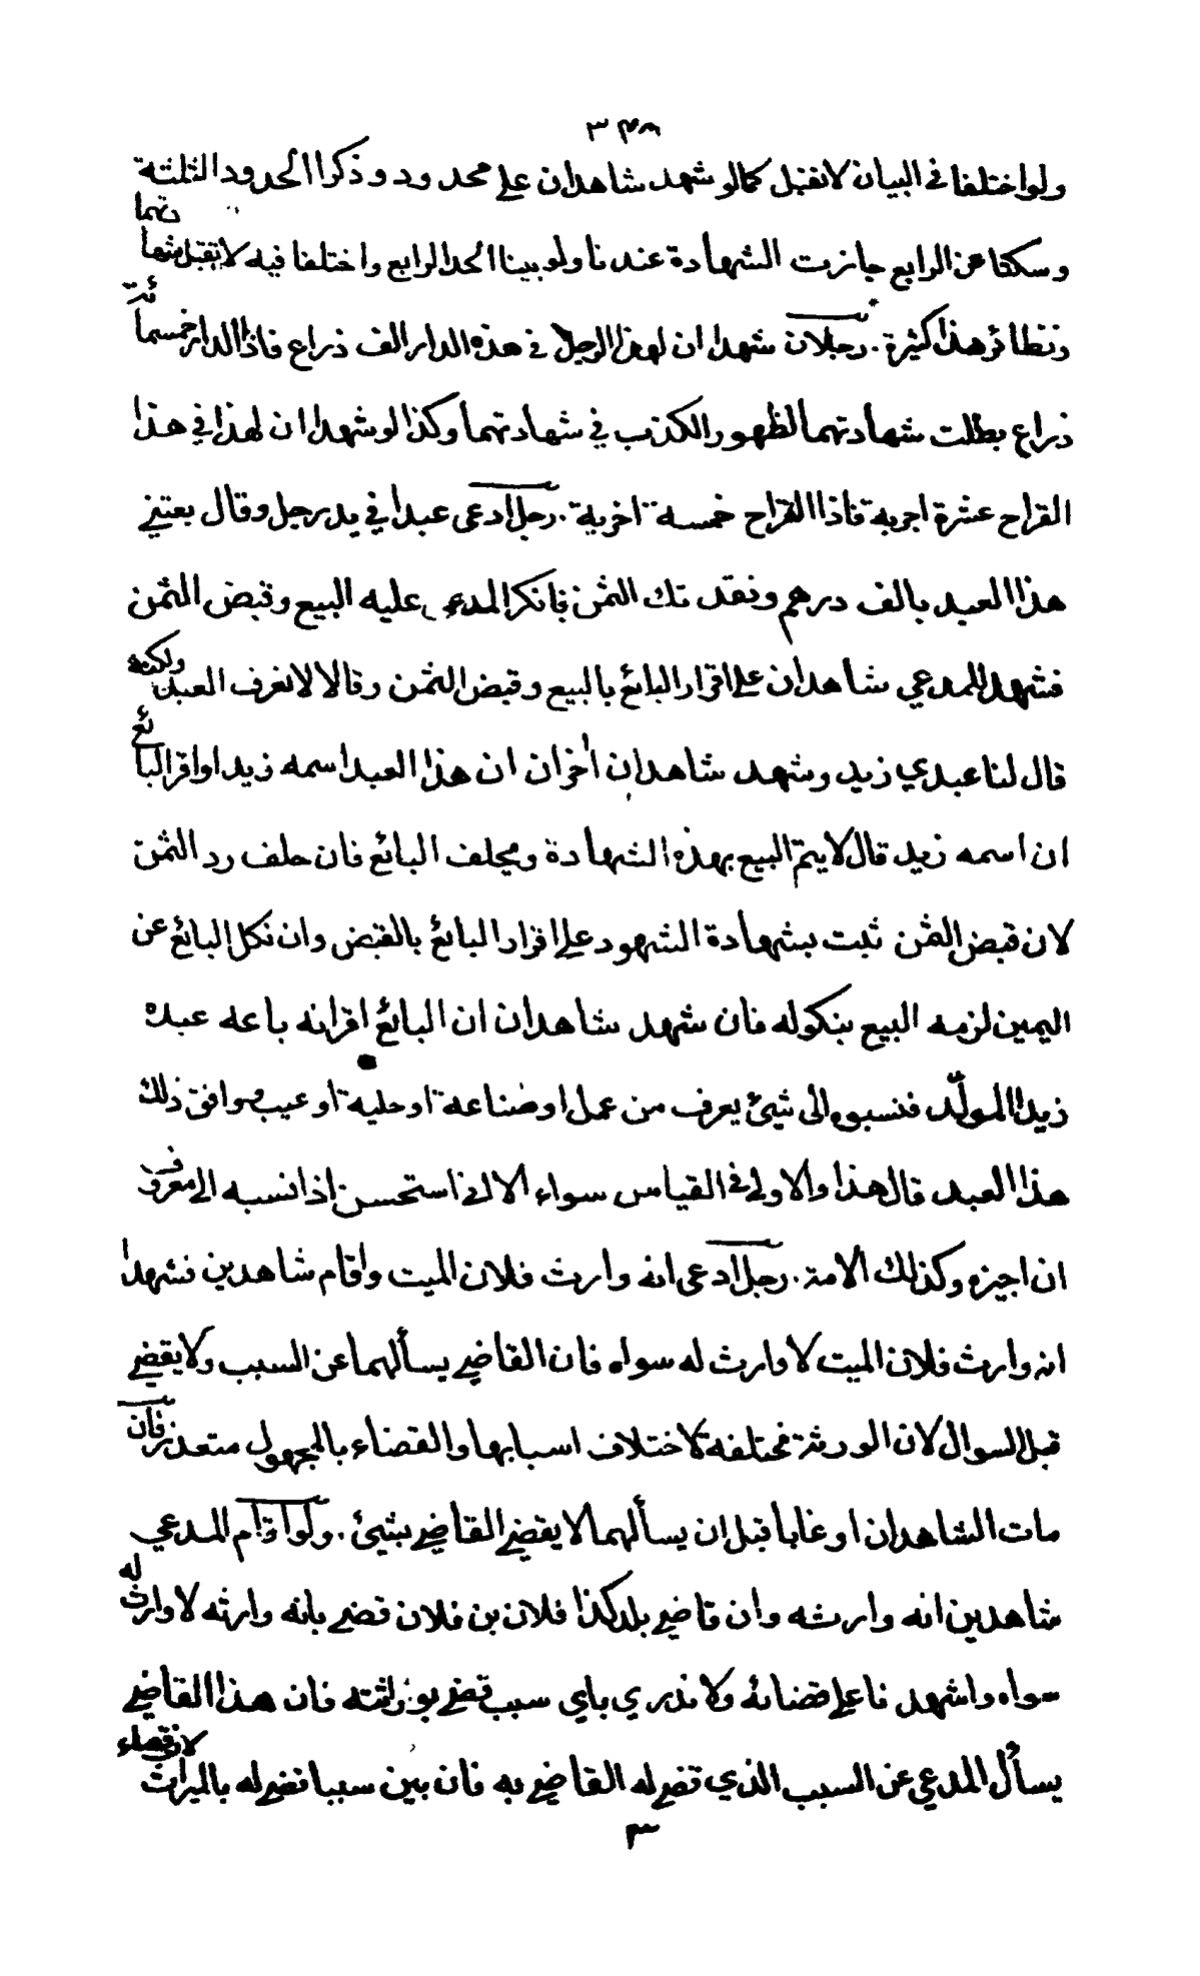 ٣٤٨
ولو اختلفا في البيان لا تقبل كما لو شهد شاهدان على محدود وذكرا الحدود الثلثة
وسكتا عن الرابع جازت الشهادة عندنا ولو بينا الحد الرابع واختلفا فيه لا تقبل شهادتهما
ونظائر هذا كثيرة . رجلان شهدا ان لهذا الرجل في هذه الدار الف ذراع فاذا الدار خمسمائة
ذراع بطلت شهادتهما لظهور الكذب في شهادتهما وكذا لو شهدا ان لهذا في هذا
القراح عشرة اجربة فاذا القراح خمسة اخربة . رجل ادعى عبدا في يد رجل وقال بعتني
هذا العبد بالف درهم ونقدتك الثمن فانكر المدعى عليه البيع وقبض الثمن
فشهد للمدعي شاهدان على اقرار البائع بالبيع وقبض الثمن وقالا لا نعرف العبد ولكنه
قال لنا عبدي زيد وشهد شاهدان اٰخران ان هذا العبد اسمه زيد او اقر البائع
ان اسمه زيد قال لا يتم البيع بهذه الشهادة ويحلف البائع فان حلف رد الثمن
لان قبض الثمن ثبت بشهادة الشهود على اقرار البائع بالقبض وان نكل البائع عن
اليمين لزمه البيع بنكوله فان شهد شاهدان ان البائع اقر انه باعه عبده
زيدا المولّد فنسبوه الى شيئ يعرف من عمل او صناعة او حلية او عيب فوافق ذلك
هذا العبد قال هذا والاول في القياس سواء الا اني استحسن اذا نسبه الى معروف
ان اجيزه وكذلك الامة . رجل ادعى انه وارث فلان الميت واقام شاهدين فشهدا
انه وارث فلان الميت لا وارث له سواه فان القاضي يسألهما عن السبب ولا يقضي
قبل السوال لان الورثة مختلفة لاختلاف اسبابها والقضاء بالمجهول متعذر فان
مات الشاهدان او غابا قبل ان يسألهما لا يقضي القاضي بشيئ . ولو اقام المدعي
شاهدين انه وارثه وان قاضي بلد كذا فلان بن فلان قضى بانه وارثه لا وارث له
سواه واشهدنا على قضائه ولا ندري باي سبب قضى بوراثته فان هذا القاضي
يسأل المدعي عن السبب الذي قضى له القاضي به فان بين سببا قضى له بالميراث لان قضاء
٣